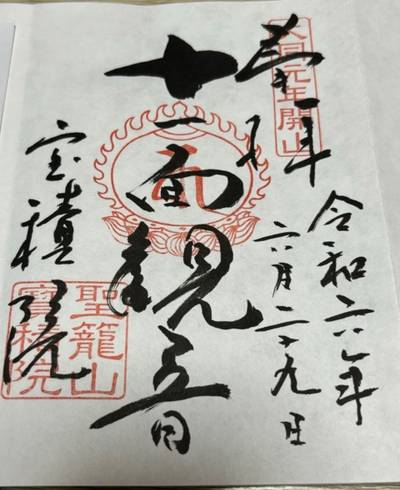 奉拝
大同元年開山
令和六年
六月二十九日
十一面観世音
宝積院
聖籠山
寶積院